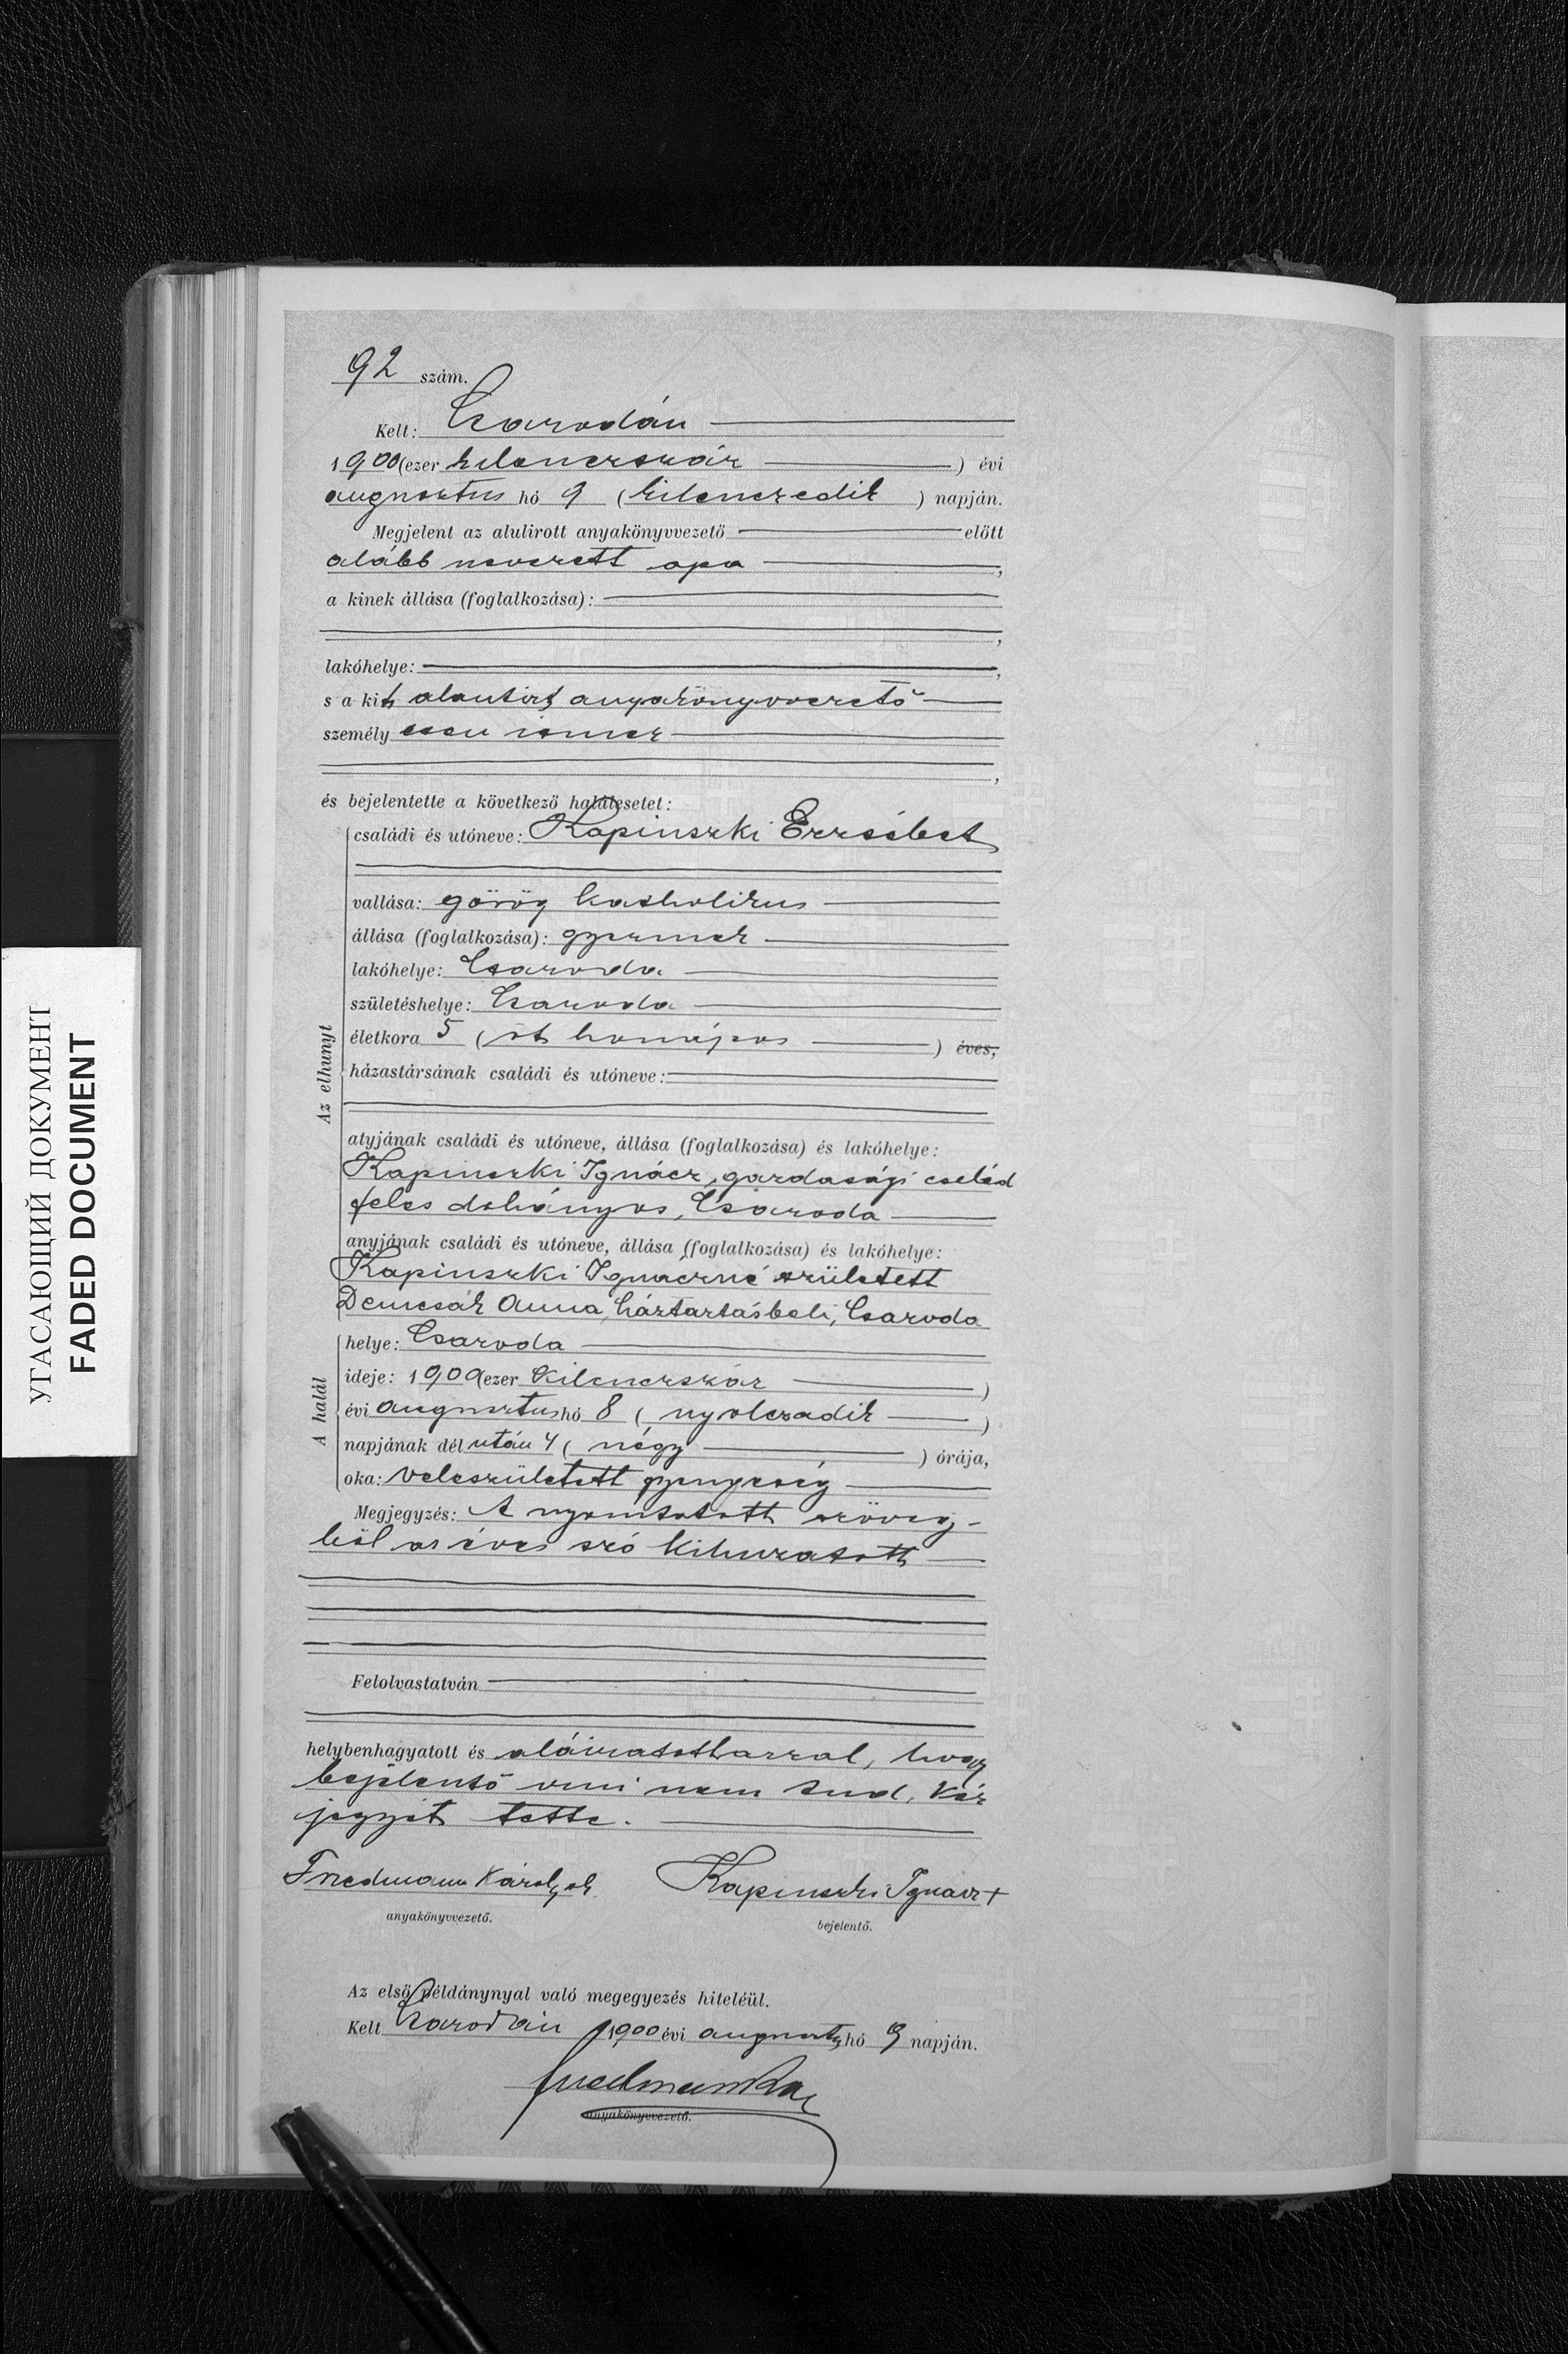 92 szám.
Kelt: Csarodán
1900 (ezer kilencszáz ) évi
augusztus hó 9 ( kilenczedik ) napján.
Megjelent az alulirott anyakönyvvezető előtt
alább nevezett apa ,
a kinek állása (foglalkozása):
,
lakóhelye: ,
s a kit alantirt anyakönyvvezető
személyesen ismer
,
és bejelentette a következő halálesetet:
családi és utóneve: Kapinszki Erzsébet
vallása: görög katholikus
állása (foglalkozása): gyermek
lakóhelye: Csaroda
születéshelye: Csaroda
életkora 5 ( öt hónapos ) éves,
házastársának családi és utóneve:
Az elhunyt
atyjának családi és utóneve, állása (foglalkozása) és lakóhelye:
Kapinszki Ignácz, gazdasági cseléd
feles dohányos, Csaroda
anyjának családi és utóneve, állása (foglalkozása) és lakóhelye:
Kapinszki Ignáczné született
Demcsák Anna, háztartásbeli, Csaroda
A halál
helye: Csaroda
ideje: 1900 (ezer kilenczszáz )
évi augusztus hó 8 ( nyolczadik )
napjának dél után 4 ( négy ) órája,
oka: veleszületett gyengeség
Megjegyzés: A nyomtatott szöveg-
ből az éves szó kihuzatott
Felolvastatván
helybenhagyatott és aláiratott azzal, hogy
bejelentő irni nem tud, kéz
jegyét tette.
Friedmann Károly sk Kapinszki Ignácz +
anyakönyvvezető. bejelentő.
Az első példánynyal való megegyezés hiteléül.
Kelt Csarodán 1900 évi auguszt. hó 9 napján.
anyakönyvvezető.
УГАСАЮЩИЙ ДОКУМЕНТ
FADED DOCUMENT